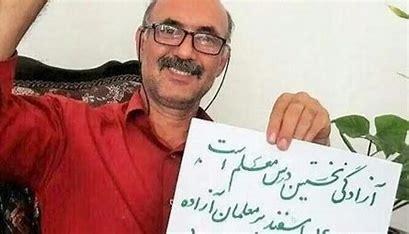 آزادگی نخستین درس معلم است
اسفند بر معلمان آزاده